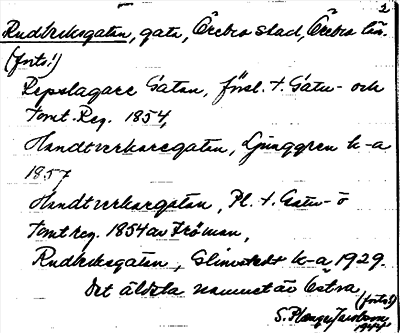 2
Rudbecksgatan, gata, Örebro stad, Örebro län.
(forts.)
Repslagare Gatan, försl. t. Gatu- och
Tomt-Reg. 1854,
Handtverkaregatan, Ljunggren k-a
1857
Handtverkargatan, Pl. t. Gatu- o
Tomtreg. 1854 av Fröman,
Rudbecksgatan, Glimstedt k-a 1929.
Det äldsta namnet är Östra
(forts!)
S.
1944